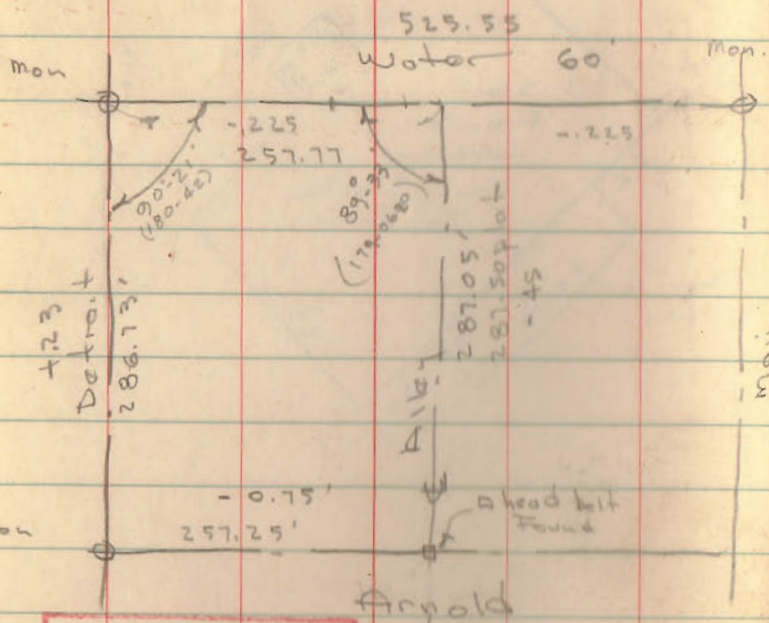 525.55
Water 60'
mon
Mon.
-.225
257.77
-.225
90°-21'
(180-42)
89°-33
+.23
Detroit
286.73'
287.05'
287.50 plat
-.45
Alley
- 0.75'
257.25'
□ head bolt
Found
on
Arnold